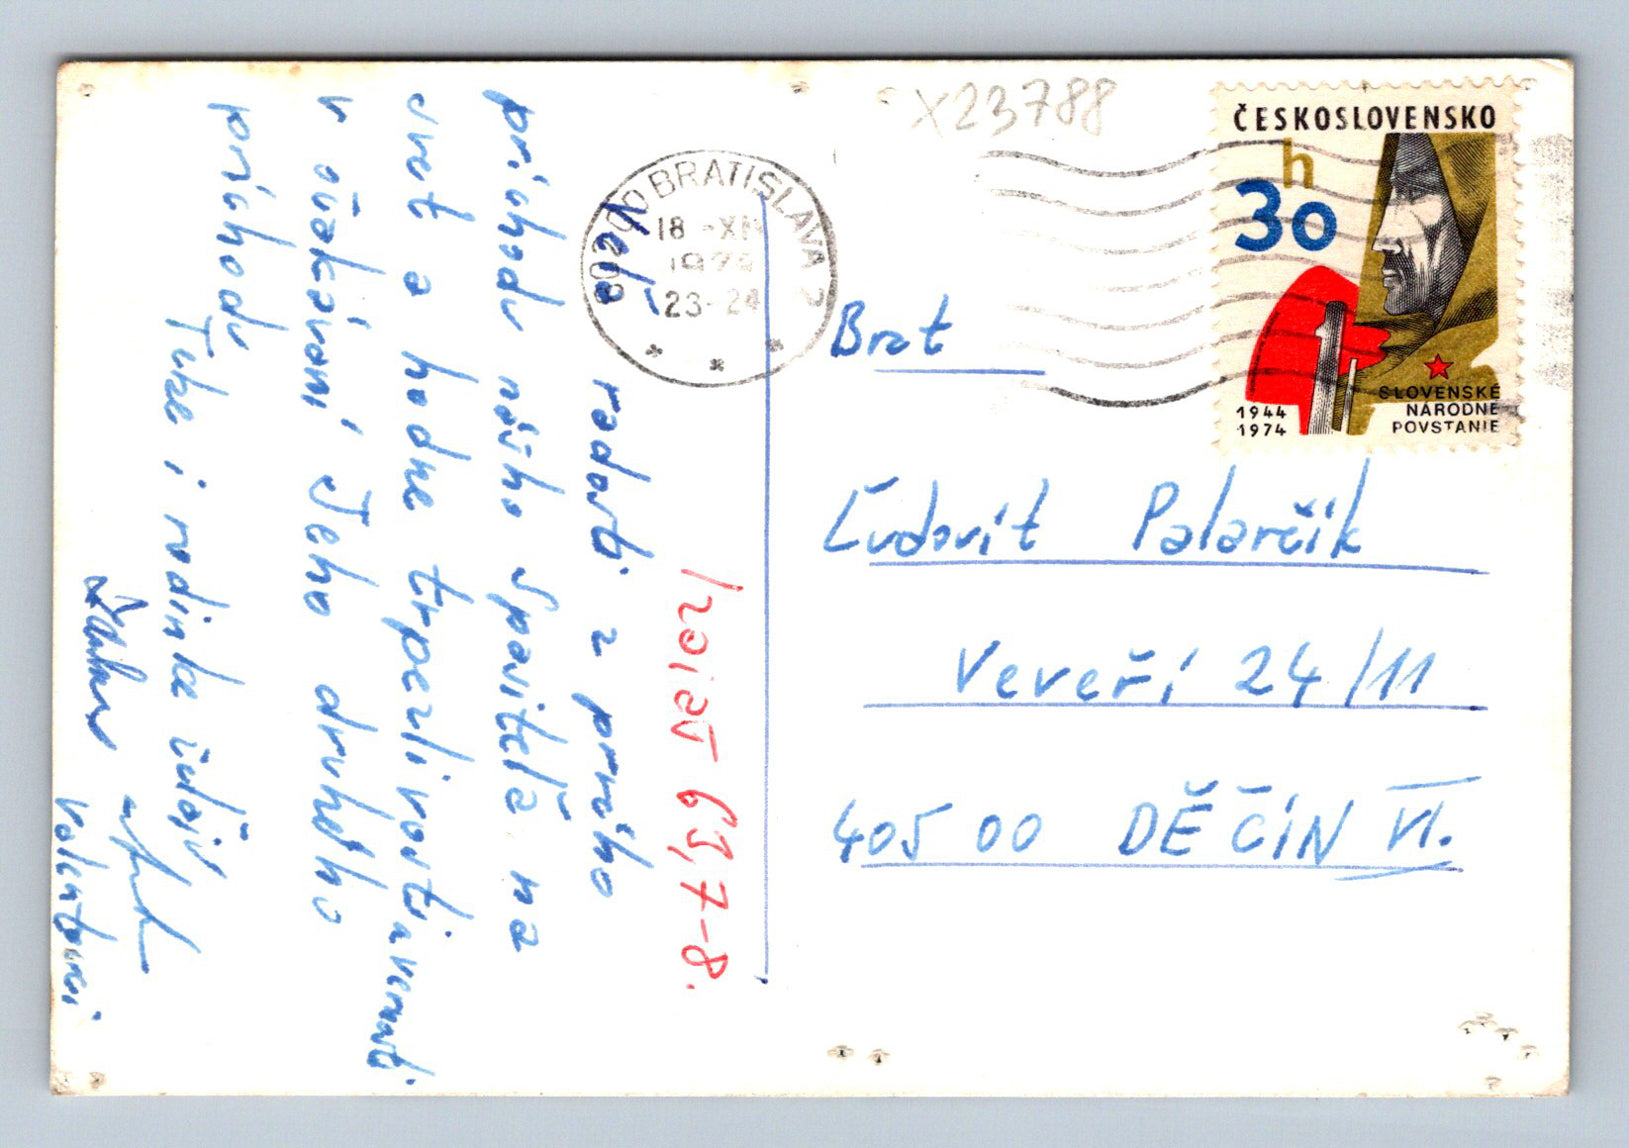 X23788
ČESKOSLOVENSKO
30
h
1944
1974
SLOVENSKÉ
NÁRODNÉ
POVSTANIE
BRATISLAVA 2
18.-XII
23-24
Brat
Ľudovít Palarčík
Veveří 24/11
405 00 DĚČÍN VI.
Izaiáš 63,7-8.
Veľa radosti z prvého
príchodu nášho Spasiteľa na
svet a hodne trpezlivosti a vernosti
v očakávaní Jeho druhého
príchodu
Tebe i rodinke želajú